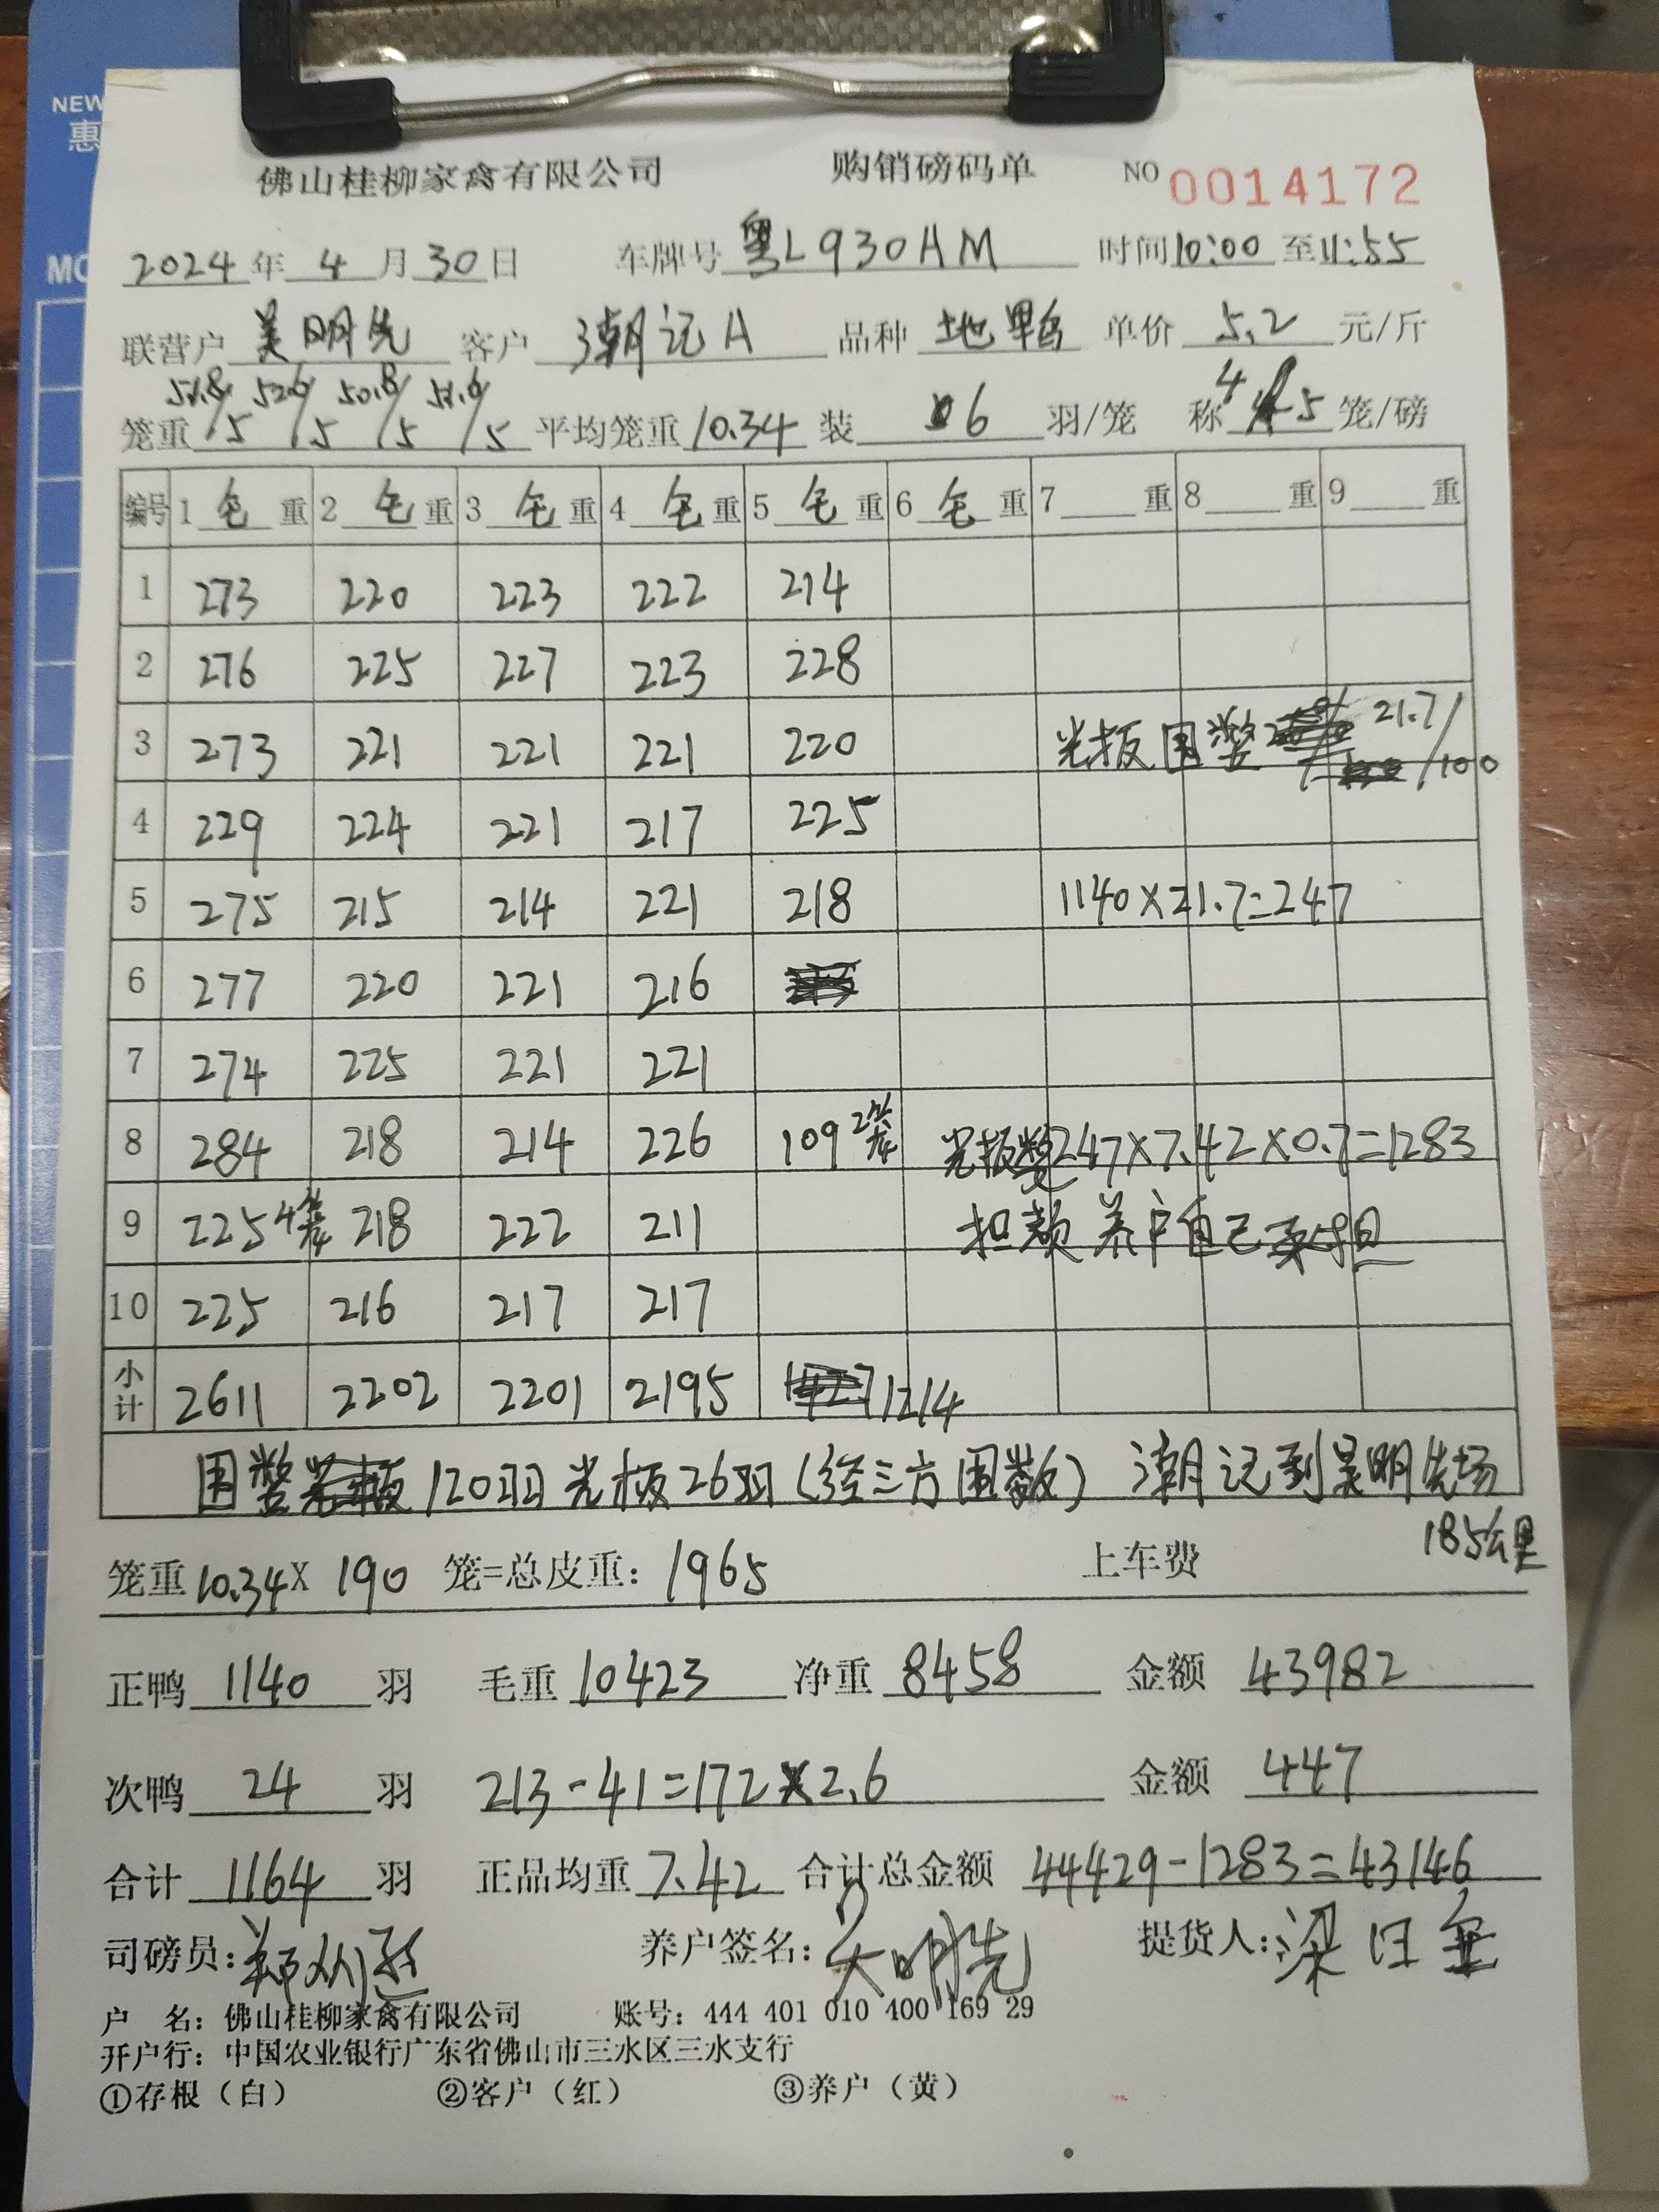 NEW
惠
MO
佛山桂柳家禽有限公司 购销磅码单 NO 0014172
2024年4月30日 车牌号 粤L930AM 时间10:00至11:55
联营户 吴明先 客户 潮记A 品种 地鸭 单价 5.2 元/斤
笼重 51.8/5 52.6/5 50.8/5 51.6/5 平均笼重 10.34 装 6 羽/笼 称 4-5 笼/磅
编号 1 毛重 2 毛重 3 毛重 4 毛重 5 毛重 6 毛重 7 重 8 重 9 重
1 273 220 223 222 214
2 276 225 227 223 228
3 273 221 221 221 220 光板围数 21.7/100
4 229 224 221 217 225
5 275 215 214 221 218 1140×21.7=247
6 277 220 221 216
7 274 225 221 221
8 284 218 214 226 109 2笼 光板数247×7.42×0.7=1283
9 225 4笼 218 222 211 扣款养户自己承担
10 225 216 217 217
小计 2611 2202 2201 2195 1214
围数 120羽光板26羽(经三方围数) 潮记到吴明先场
185公里
笼重 10.34× 190 笼=总皮重: 1965 上车费
正鸭 1140 羽 毛重 10423 净重 8458 金额 43982
次鸭 24 羽 213-41=172×2.6 金额 447
合计 1164 羽 正品均重 7.42 合计总金额 44429-1283=43146
司磅员: 养户签名: 吴明先 提货人: 梁
户 名: 佛山桂柳家禽有限公司 账号: 444 401 010 400 169 29
开户行: 中国农业银行广东省佛山市三水区三水支行
①存根(白) ②客户(红) ③养户(黄)